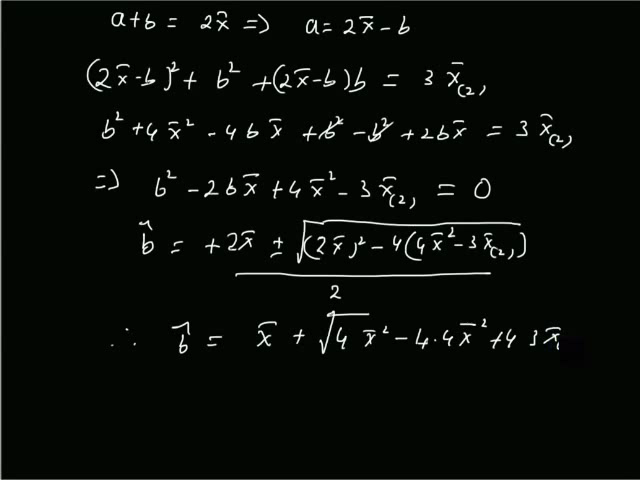 a+b = 2x̄ => a = 2x̄ - b
(2x̄-b)² + b² + (2x̄-b)b = 3 x̄₍₂,
b² + 4x̄² - 4bx̄ + b² - b² + 2bx̄ = 3 x̄₍₂,
=> b² - 2bx̄ + 4x̄² - 3x̄₍₂, = 0
b̂ = +2x̄ ± √((2x̄)² - 4(4x̄² - 3x̄₍₂,)) / 2
∴ b̂ = x̄ + √4 x̄² - 4.4x̄² + 4 3 x̄